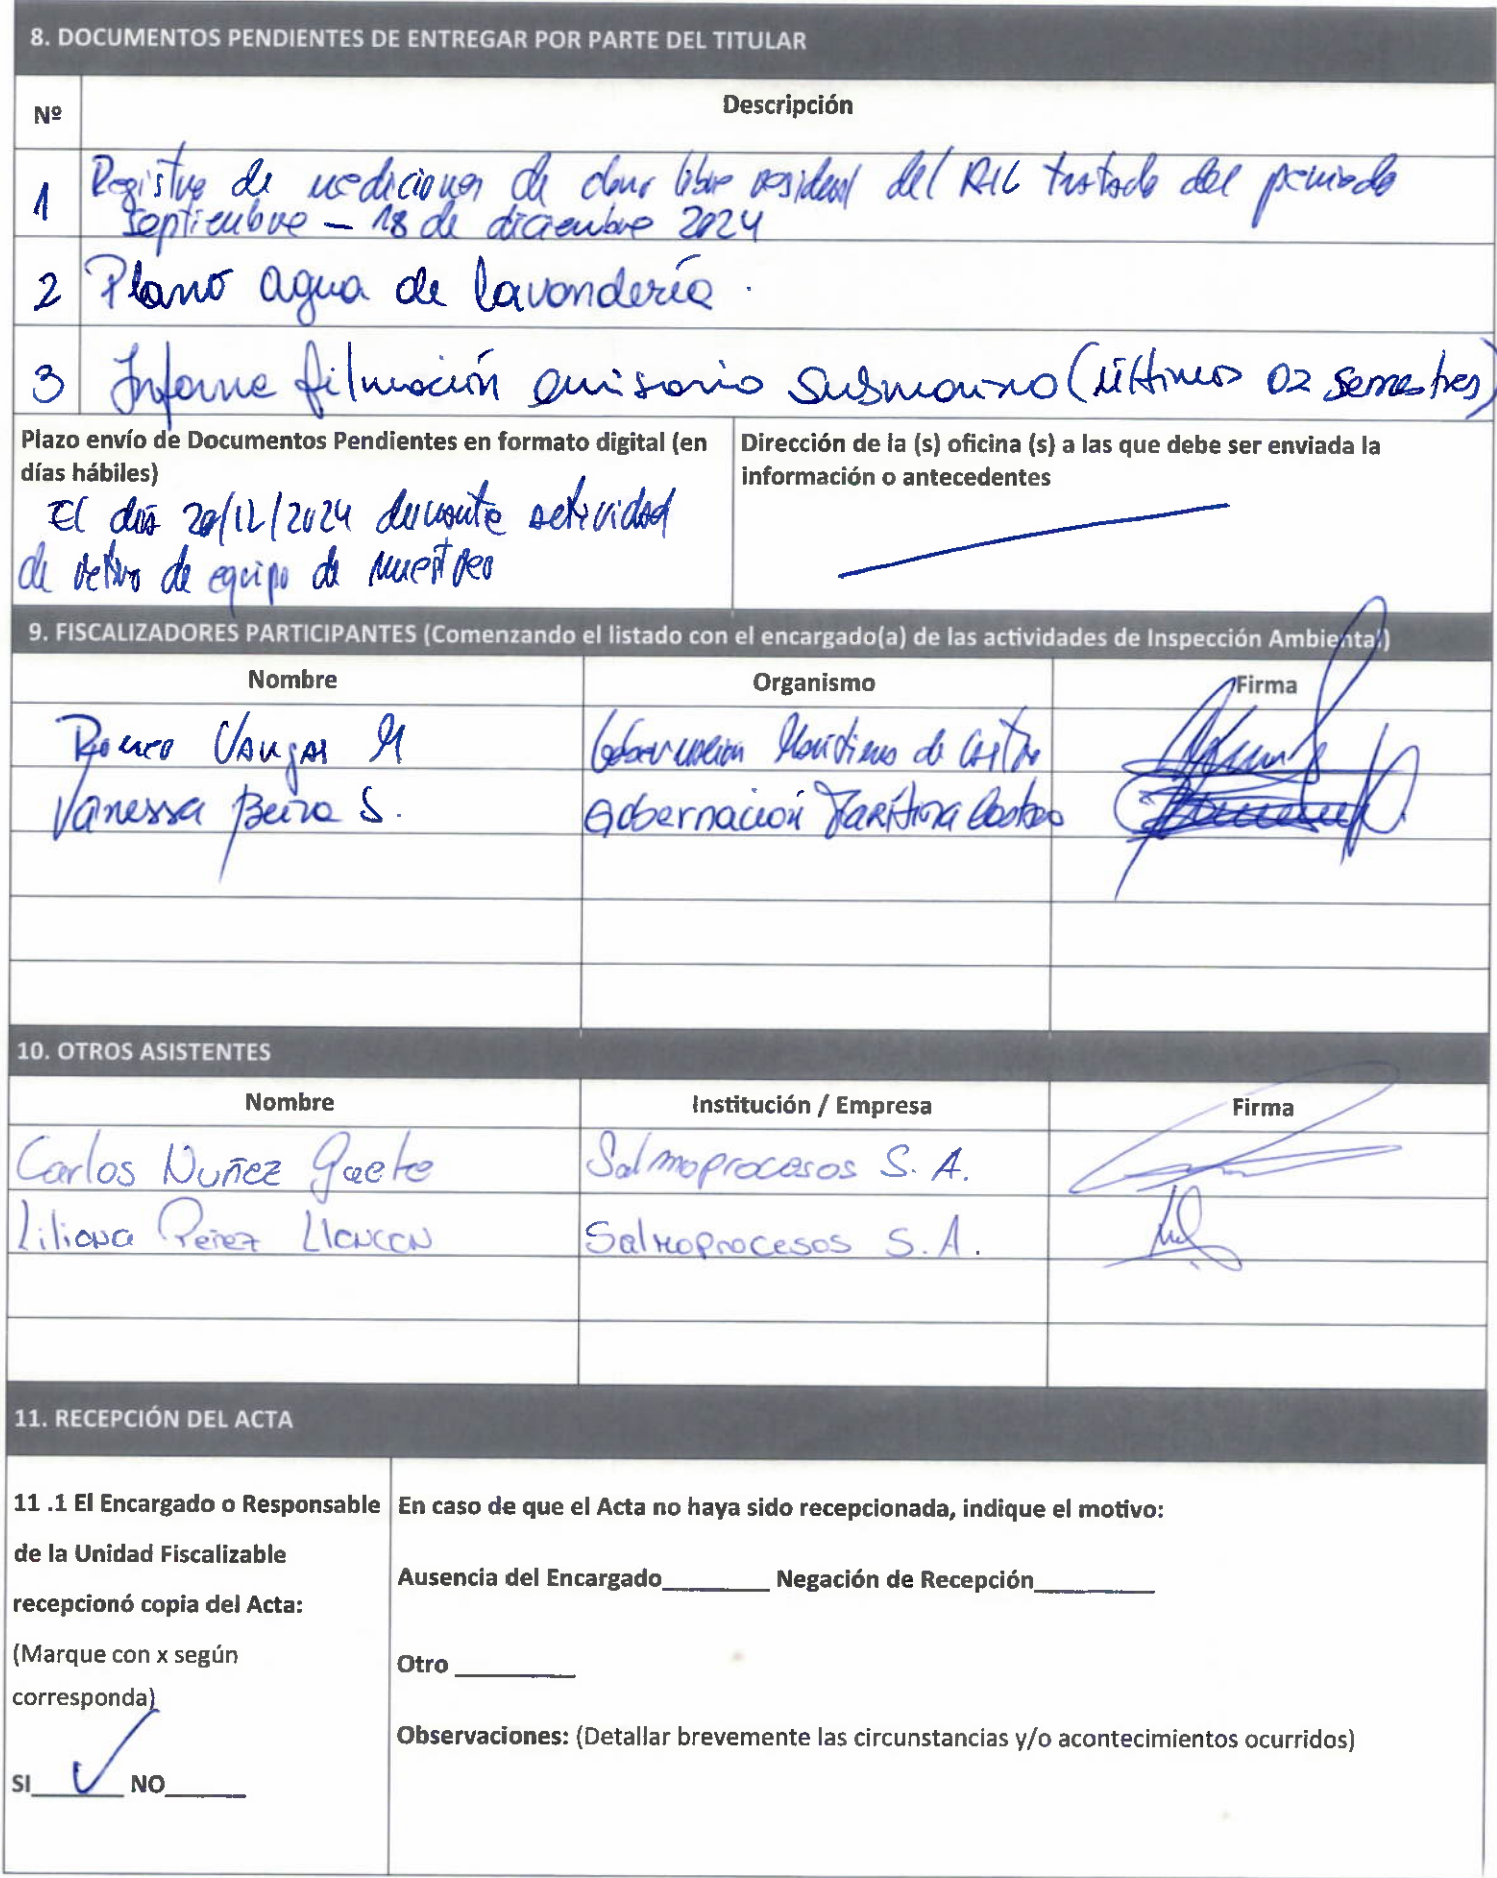 8. DOCUMENTOS PENDIENTES DE ENTREGAR POR PARTE DEL TITULAR
Nº Descripción
1 Registro de mediciones de cloro libre residual del RIL tratado del periodo
septiembre – 18 de diciembre 2024
2 Plano agua de lavandería.
3 Informe filmación emisario submarino (últimos 02 semestres)
Plazo envío de Documentos Pendientes en formato digital (en
días hábiles)
El día 20/12/2024 durante actividad
de retiro de equipo de muestreo
Dirección de la (s) oficina (s) a las que debe ser enviada la
información o antecedentes
9. FISCALIZADORES PARTICIPANTES (Comenzando el listado con el encargado(a) de las actividades de Inspección Ambiental)
Nombre Organismo Firma
Vargas M Gobernación Marítima de Castro
Vanessa S. Gobernación Marítima Castro
10. OTROS ASISTENTES
Nombre Institución / Empresa Firma
Carlos Nuñez Gaete Salmoprocesos S. A.
Liliana Perez Llancan Salmoprocesos S. A.
11. RECEPCIÓN DEL ACTA
11 .1 El Encargado o Responsable
de la Unidad Fiscalizable
recepcionó copia del Acta:
(Marque con x según
corresponda)
SI ✓ NO
En caso de que el Acta no haya sido recepcionada, indique el motivo:
Ausencia del Encargado Negación de Recepción
Otro
Observaciones: (Detallar brevemente las circunstancias y/o acontecimientos ocurridos)